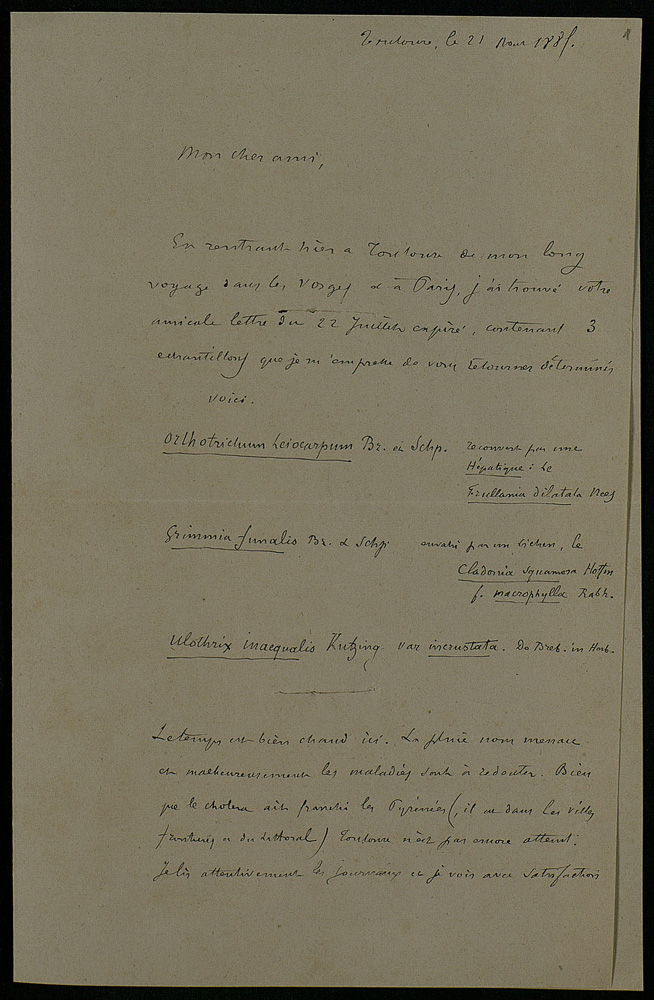 Toulouse, le 21 Aout 1885.
1
Mon cher ami,
En rentrant hier a Toulouse de mon long
voyage dans les Vosges et à Paris, j'ai trouvé votre
amicale lettre du 22 Juillet expiré, contenant 3
echantillons que je m'empresse de vous retourner déterminés
voici.
Orthotrichum Leiocarpum Br. et Schp. recouvert par une
Hépatique : le
Frullania dilatata Nees
Grimmia funalis Br. & Schp envahi par un lichen, le
Cladonia squamosa Hoffm
f. macrophylla Rabh.
Ulothrix inaequalis Kutzing var incrustata. De Breb. in Herb.
Le temps est bien chaud ici. La pluie nous menace
et malheureusement les maladies sont à redouter. Bien
que le cholera ait franchi les Pyrénées (il est dans les villes
frontieres et du littoral) Toulouse n'est pas encore atteint.
Je lis attentivement les journaux et je vois avec satisfaction